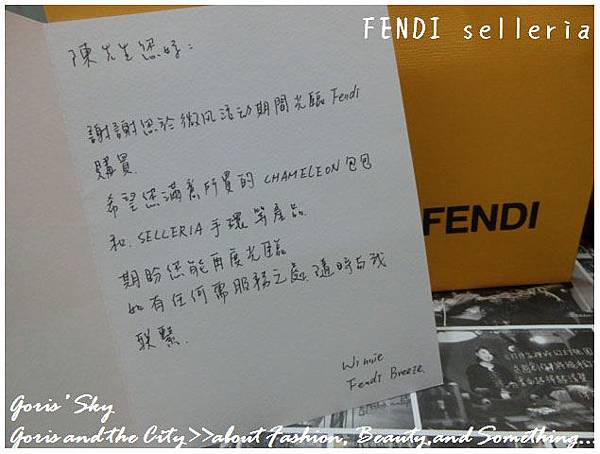 FENDI selleria
陳先生您好:
謝謝您於微風活动期間光臨 Fendi
購買.
希望您滿意所買的 CHAMELEON 包包
和. SELLERIA 手環 等產品.
期盼您能再度光臨
如有任何需服務之處. 隨時与我
联繫.
Winnie
Fendi Breeze.
FENDI
Goris' Sky
Goris and the City>>about Fashion, Beauty,and Something...